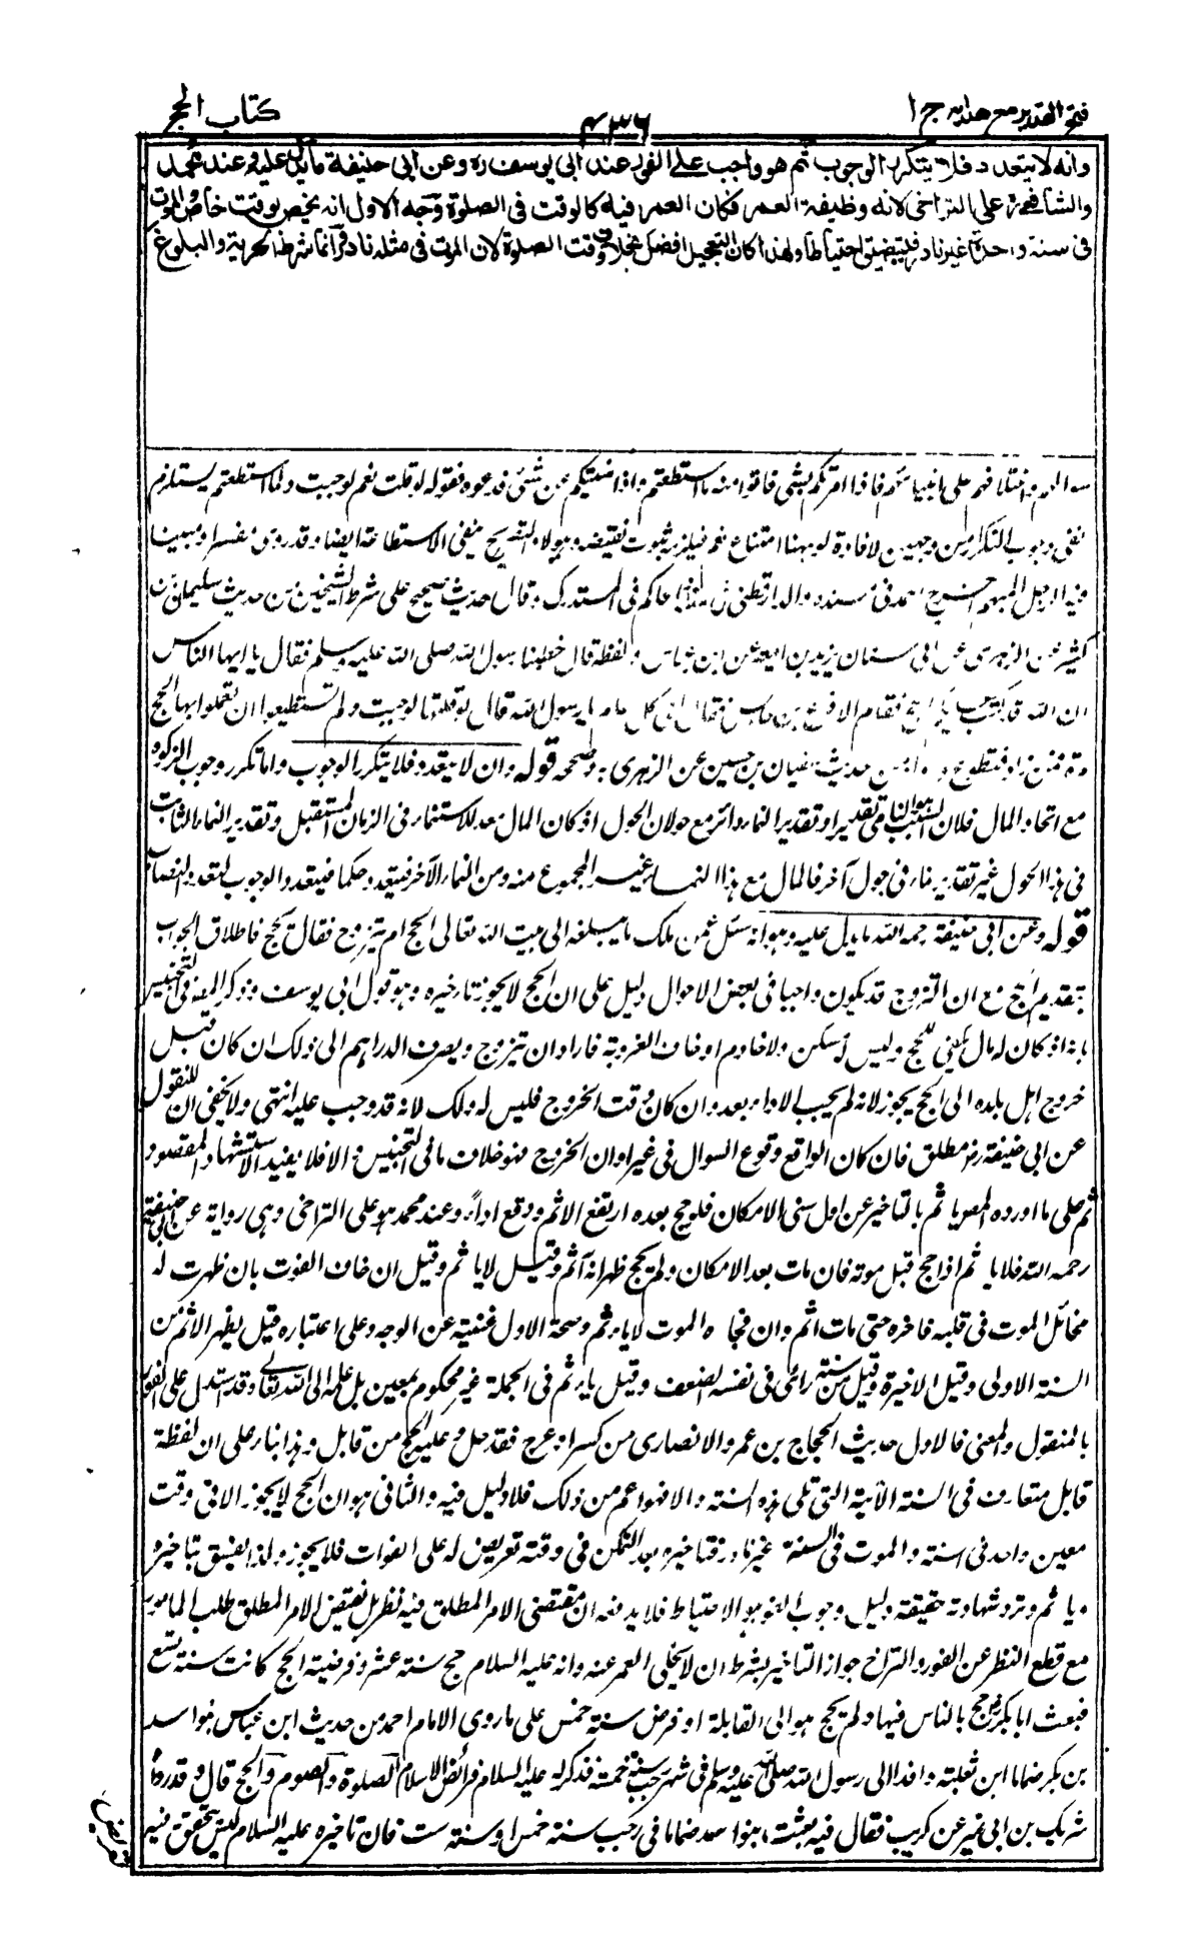 فتح القدير مع هدايه ج ١
٤٣٦
كتاب الحج
وانه لا يتعدد فلا يتكرر الوجوب ثم هو واجب على الفور عند ابى يوسف ره وعن ابى حنيفة ما يدل عليه وعند محمد
والشافعى على التراخى لانه وظيفة العمر فكان العمر فيه كالوقت فى الصلوة وجه الاول انه يختص بوقت خاص والموت
فى سنة واحدة غير نادر فيتضيق احتياطا ولهذا كان التعجيل افضل بخلاف وقت الصلوة لان الموت فى مثله نادر وانما شرط الحرية والبلوغ
سوالهم واختلافهم على انبيائهم فاذا امرتكم بشئ فاتوا منه ما استطعتم واذا نهيتكم عن شئ فدعوه فقوله لو قلت نعم لوجبت ولما استطعتم يستلزم
نفى وجوب التكرار من وجهين لافادة لو ههنا امتناع نعم فيلزمه ثبوت نقيضه وهو لا والتصريح بنفى الاستطاعة ايضا وقد روى مفسرا ومبينا
فيه الرجل المبهم اخرج احمد فى مسنده والدارقطنى فى سننه والحاكم فى المستدرك وقال حديث صحيح على شرط الشيخين من حديث سليمان بن
كثير عن الزهرى عن ابى سنان يزيد بن امية عن ابن عباس ولفظه قال خطبنا رسول الله صلى الله عليه وسلم فقال يا ايها الناس
ان الله قد كتب عليكم الحج فقام الاقرع بن حابس فقال افى كل عام يا رسول الله قال لو قلتها لوجبت ولم تستطيعوا ان تعملوا بها الحج
مرة فمن زاد فتطوع من حديث سفيان بن حسين عن الزهرى وصححه قوله وان لا يتعدد فلا يتكرر الوجوب واما تكرر وجوب الزكوة
مع اتحاد المال فلان السبب هو النامى تقديرا وتقدير النماء دائر مع حولان الحول اذ كان المال معد للاستنماء فى الزمان المستقبل وتقدير النماء الثابت
فى هذا الحول غير تقدير نماء فى حول آخر فالمال مع هذا النماء غير المجموع منه ومن النماء الآخر فيتعدد حكما فيتعدد الوجوب لتعدد النصاب
قوله وعن ابى حنيفة رحمه الله ما يدل عليه وهو انه سئل عمن ملك ما يبلغه الى بيت الله تعالى الحج ام يتزوج فقال يحج فاطلاق الجواب
بتقديم الحج مع ان التزوج قد يكون واجبا فى بعض الاحوال دليل على ان الحج لا يجوز تاخيره وهو قول ابى يوسف وذكر المص فى التجنيس
بانه اذا كان له مال يكفى للحج وليس له مسكن ولا خادم او خاف العزوبة فاراد ان يتزوج ويصرف الدراهم الى ذلك ان كان قبل
خروج اهل بلده الى الحج يجوز لانه لم يجب الاداء بعد وان كان وقت الخروج فليس له ذلك لانه قد وجب عليه انتهى ولا يخفى ان المنقول
عن ابى حنيفة رض مطلق فان كان الواقع وقوع السوال فى غير اوان الخروج فهو خلاف ما فى التجنيس والا فلا يفيد الاستشهاد المقصود
ثم على ما اورده المص يأثم بالتاخير عن اول سنى الامكان فلو حج بعده ارتفع الاثم ووقع اداءً وعند محمد هو على التراخى وهى رواية عن ابى حنيفة
رحمه الله فلا يأثم اذا حج قبل موته فان مات بعد الامكان ولم يحج ظهر انه آثم وقيل لا يأثم وقيل ان خاف الفوت بان ظهرت له
مخائل الموت فى قلبه فاخره حتى مات اثم وان فجاه الموت لا يأثم وصحة الاول غنية عن الوجه وعلى اعتباره قيل يظهر الاثم من
السنة الاولى وقيل الاخيرة وقيل من سنة رائى فى نفسه الضعف وقيل يأثم فى الجملة غير محكوم بمعين بل علمه الى الله تعالى وقد استدل على الفور
بالمنقول والمعنى فالاول حديث الحجاج بن عمرو الانصارى من كسر او عرج فقد حل وعليه الحج من قابل وهذا بناء على ان لفظة
قابل متعارف فى السنة الآتية التى تلى هذه السنة والا فهو اعم من ذلك فلا دليل فيه والثانى هو ان الحج لا يجوز الا فى وقت
معين واحد فى السنة والموت فى السنة غير نادر فتاخيره بعد التمكن فى وقته تعريض له على الفوات فلا يجوز ولذا يفسق بتاخيره
ويأثم وترد شهادته حقيقة دليل وجوب الفور هو الاحتياط فلا يدفعه ان مقتضى الامر المطلق فيه نظر بل نقتضى الامر المطلق طلب المامور
مع قطع النظر عن الفور والتراخى جواز التاخير بشرط ان لا يخلى العمر عنه وانه عليه السلام حج سنة عشر وفرضية الحج كانت سنة تسع
فبعث ابا بكر فحج بالناس فيها ولم يحج هو الى القابلة او فرض سنة خمس على ما روى الامام احمد من حديث ابن عباس بنو اسد
بن بكر ضماما ابن ثعلبة وافدا الى رسول الله صلى الله عليه وسلم فى شهر رجب سنة خمسة فذكر له عليه السلام فرائض الاسلام الصلوة والصوم والحج قال وقد رواه
شريك بن ابى نمر عن كريب فقال فيه بعثت بنو اسعد ضماما فى رجب سنة خمس او سنة ست فان تاخيره عليه السلام ليس يتحقق فيه
تعريض